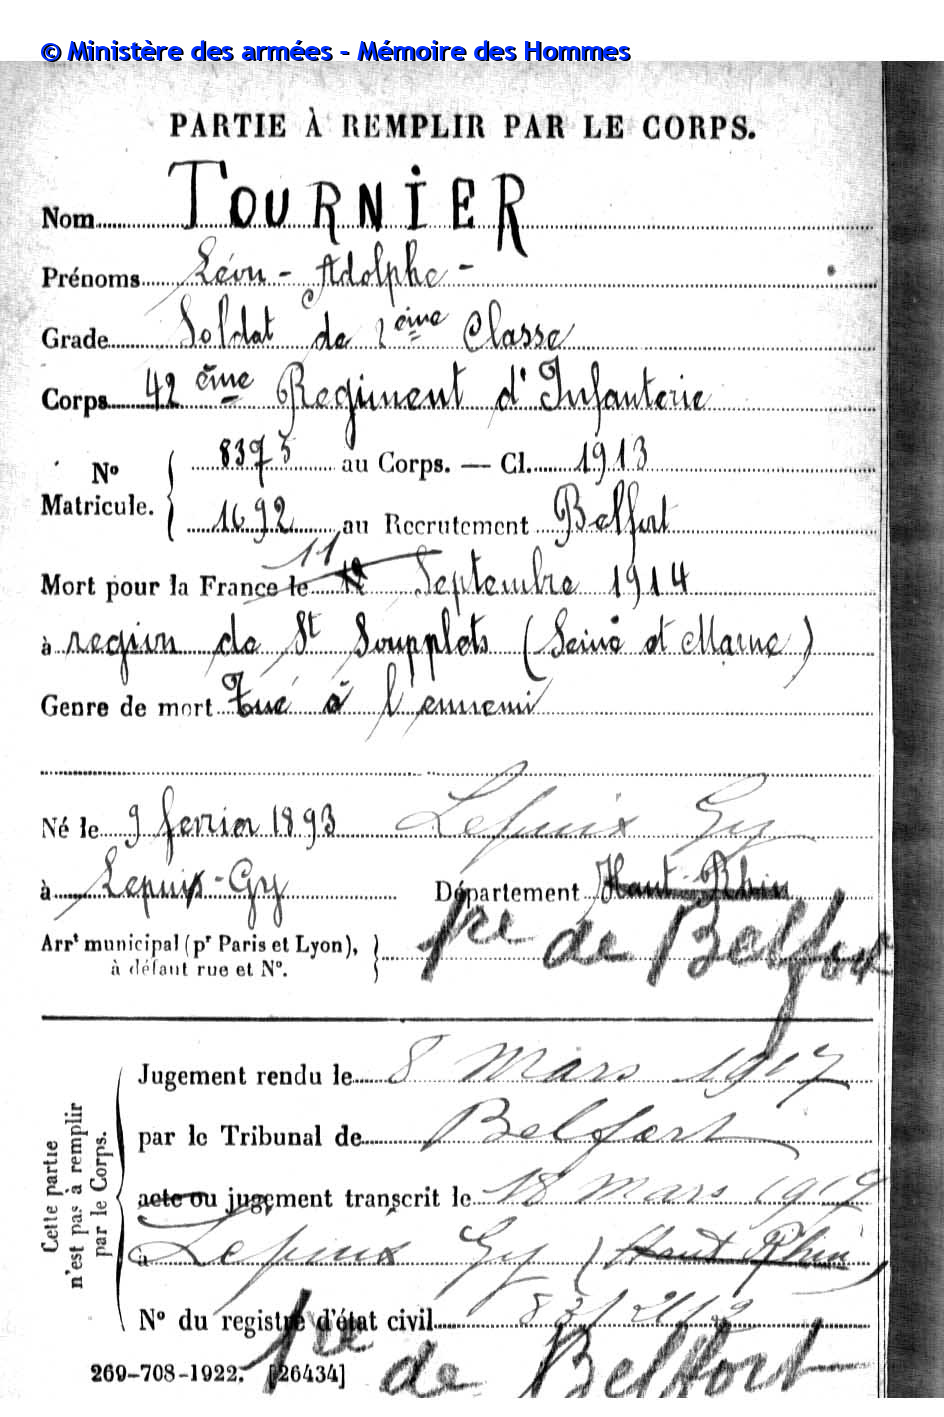 © Ministère des armées - Mémoire des Hommes
PARTIE À REMPLIR PAR LE CORPS.
Nom TOURNIER
Prénoms Léon - Adolphe -
Grade Soldat de 2ème Classe
Corps 42ème Régiment d'Infanterie
No Matricule. 8375 au Corps. — Cl. 1913
1692 au Recrutement Belfort
11
Mort pour la France le Septembre 1914
à region de St Soupplets (Seine et Marne)
Genre de mort Tué à l'ennemi
Né le 9 fevrier 1893 Lepuix Gy
à Lepuix-Gy Département Haut-Rhin
Arrt municipal (pr Paris et Lyon), à défaut rue et No. 
Tre de Belfort
Cette partie n'est pas à remplir par le Corps.
Jugement rendu le 8 Mars 1917
par le Tribunal de Belfort
acte ou jugement transcrit le 18 mars 1917
à Lepuix Gy (Haut Rhin)
No du registre d'état civil
Tre de Belfort
269-708-1922. [26434]